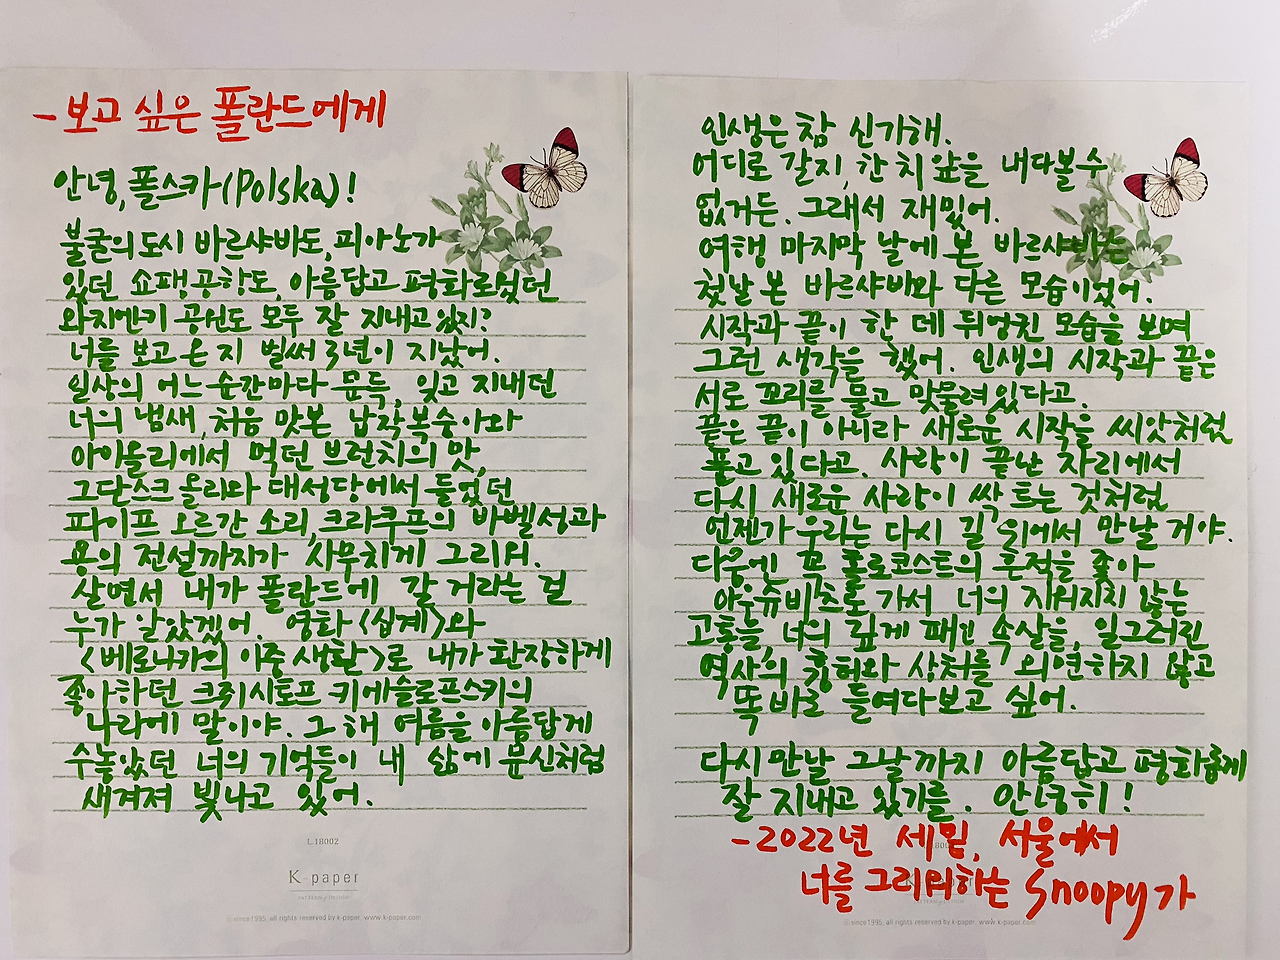 -보고 싶은 폴란드에게
안녕, 폴스카(Polska)!
불굴의 도시 바르샤바도, 피아노가
있던 쇼팽공항도, 아름답고 평화로웠던
와지엔키 공원도 모두 잘 지내고 있지?
너를 보고 온 지 벌써 3년이 지났어.
일상의 어느 순간마다 문득, 잊고 지내던
너의 냄새, 처음 맛본 납작복숭아와
아이올리에서 먹던 브런치의 맛,
그단스크 올리와 대성당에서 들었던
파이프 오르간 소리, 크라쿠프의 바벨성과
용의 전설까지가 사무치게 그리워.
살면서 내가 폴란드에 갈 거라는 걸
누가 알았겠어. 영화 <십계>와
<베로니카의 이중생활>로 내가 환장하게
좋아하던 크쥐시토프 키에슬로프스키의
나라에 말이야. 그 해 여름을 아름답게
수놓았던 너의 기억들이 내 삶에 문신처럼
새겨져 빛나고 있어.
L.18002
K-paper
since1995, all rights reserved by k-paper, www.k-paper.com
인생은 참 신기해.
어디로 갈지, 한 치 앞을 내다볼수
없거든. 그래서 재밌어.
여행 마지막 날에 본 바르샤바는
첫날 본 바르샤바와 다른 모습이었어.
시작과 끝이 한 데 뒤엉킨 모습을 보며
그런 생각을 했어. 인생의 시작과 끝은
서로 꼬리를 물고 맞물려있다고.
끝은 끝이 아니라 새로운 시작을 씨앗처럼
품고 있다고. 사랑이 끝난 자리에서
다시 새로운 사랑이 싹 트는 것처럼
언젠가 우리는 다시 길 위에서 만날 거야.
다음엔 꼭 홀로코스트의 흔적을 좇아
아우슈비츠로 가서 너의 지워지지 않는
고통을, 너의 깊게 패인 속살을, 일그러진
역사의 흉터와 상처를 외면하지 않고
똑바로 들여다보고 싶어.
다시 만날 그날까지 아름답고 평화롭게
잘 지내고 있기를. 안녕히!
-2022년 세밑, 서울에서
너를 그리워하는 Snoopy가
since1995, all rights reserved by k-paper, www.k-paper.com